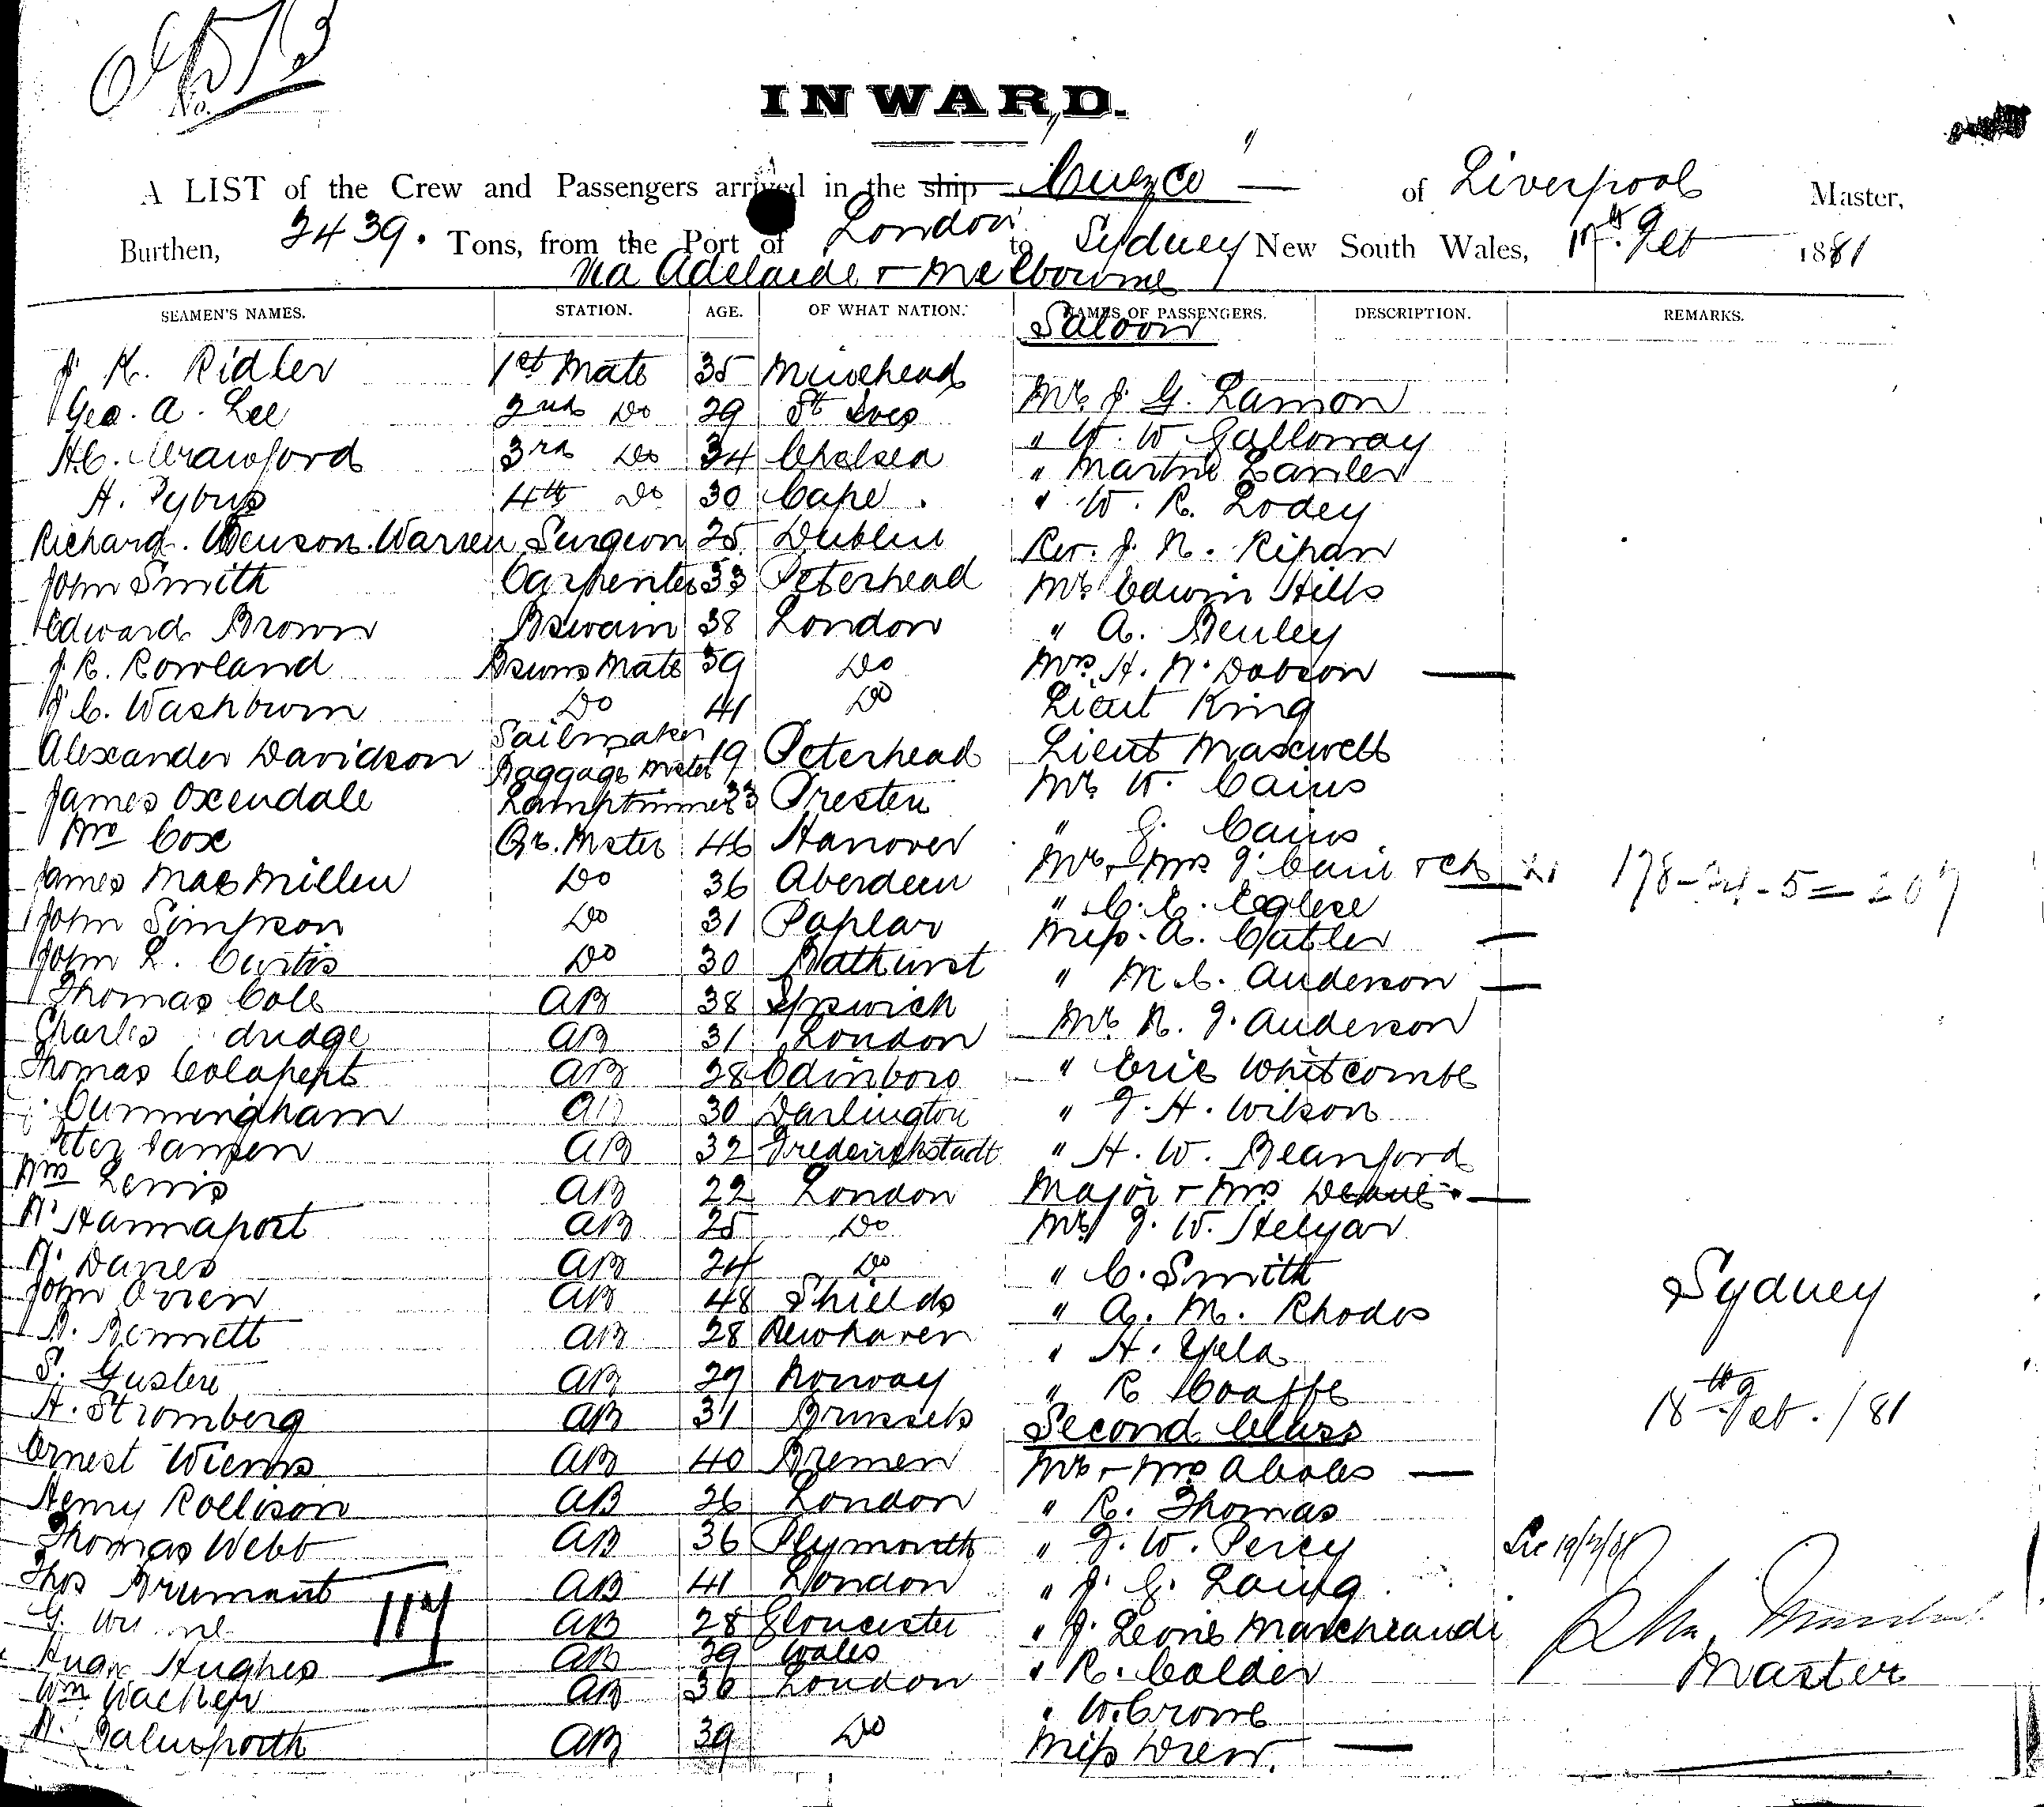 No.
INWARD.
A LIST of the Crew and Passengers arrived in the ship "Cuzco" of Liverpool Master,
Burthen, 2439. Tons, from the Port of London to Sydney New South Wales, Feb 1881
via Adelaide & Melbourne
SEAMEN'S NAMES. STATION. AGE. OF WHAT NATION. NAMES OF PASSENGERS. DESCRIPTION. REMARKS.
Saloon
J. K. Ridler 1st Mate 35 Muirehead Mr J. G. Lamon
Geo. A. Lee 2nd Do 29 St Ives " W. W. Galloway
H.C. Crawford 3rd Do 34 Chelsea " Lawler
H. Pybus 4th Do 30 Cape. " W. R. Lodey
Richard. Benson. Warren Surgeon 25 Dublin Rev. J. N. Ripan
John Smith Carpenter 33 Peterhead Mr Edwin Hills
Edward Brown Bswain 38 London " A. Benley
J. R. Rowland Bsuns Mate 39 Do Mrs. H. N. Dobson
J. C. Washburn Do 41 Do Lieut King
Alexander Davidson Sailmaker 19 Peterhead Lieut Maxwell
James Oxendale Baggage Mster Lamptrimmer 33 Presten Mr W. Cains
Wm Cox Qr. Mster 46 Hanover " G. Cains
James MacMillen Do 36 Aberdeen Mr & Mrs J. Cain & ch 178-24-5=207
John Simpson Do 31 Poplar " C. E. Eglese
John L. Curtis Do 30 Bathurst Miss. A. Cutler
Thomas Cole AB 38 Ipswich " M. C. Anderson
Charles dridge AB 31 London Mr N. J. Anderson
Thomas AB 28 Edinboro " Eric Whitcombe
Cunningham AB 30 Darlington " J. H. Wilson
Jansen AB 32 Frederickstadt " H. W. Beanford
Wm Lewis AB 22 London Major & Mrs Deane.
N. Hannaport AB 25 Do Mr J. W. Helyar
N. Danes AB 24 Do " C. Smith
John Owen AB 48 Shields " A. M. Rhodes
Sydney
N. Bennett AB 28 Newhaven " H. Yela
S. Gustere AB 29 Norway " R Coaffe
H. Stromberg AB 31 Brussels Second Class
18th Feb. /81
Ernest Wiems AB 40 Bremen Mr & Mrs Aboles
Henry Rollison AB 26 London " R. Thomas
Thomas Webb AB 36 Plymouth " J. W. Percy
Thos Brumant AB 41 London " J. G. Laing
G. AB 28 Gloucester " J. Leonie Marcheaudi
114
Hugh Hughes AB 39 Wales " R. Calder
Master
Wm Walker AB 36 London " W. Crome
N. AB 39 Do Miss Drew.